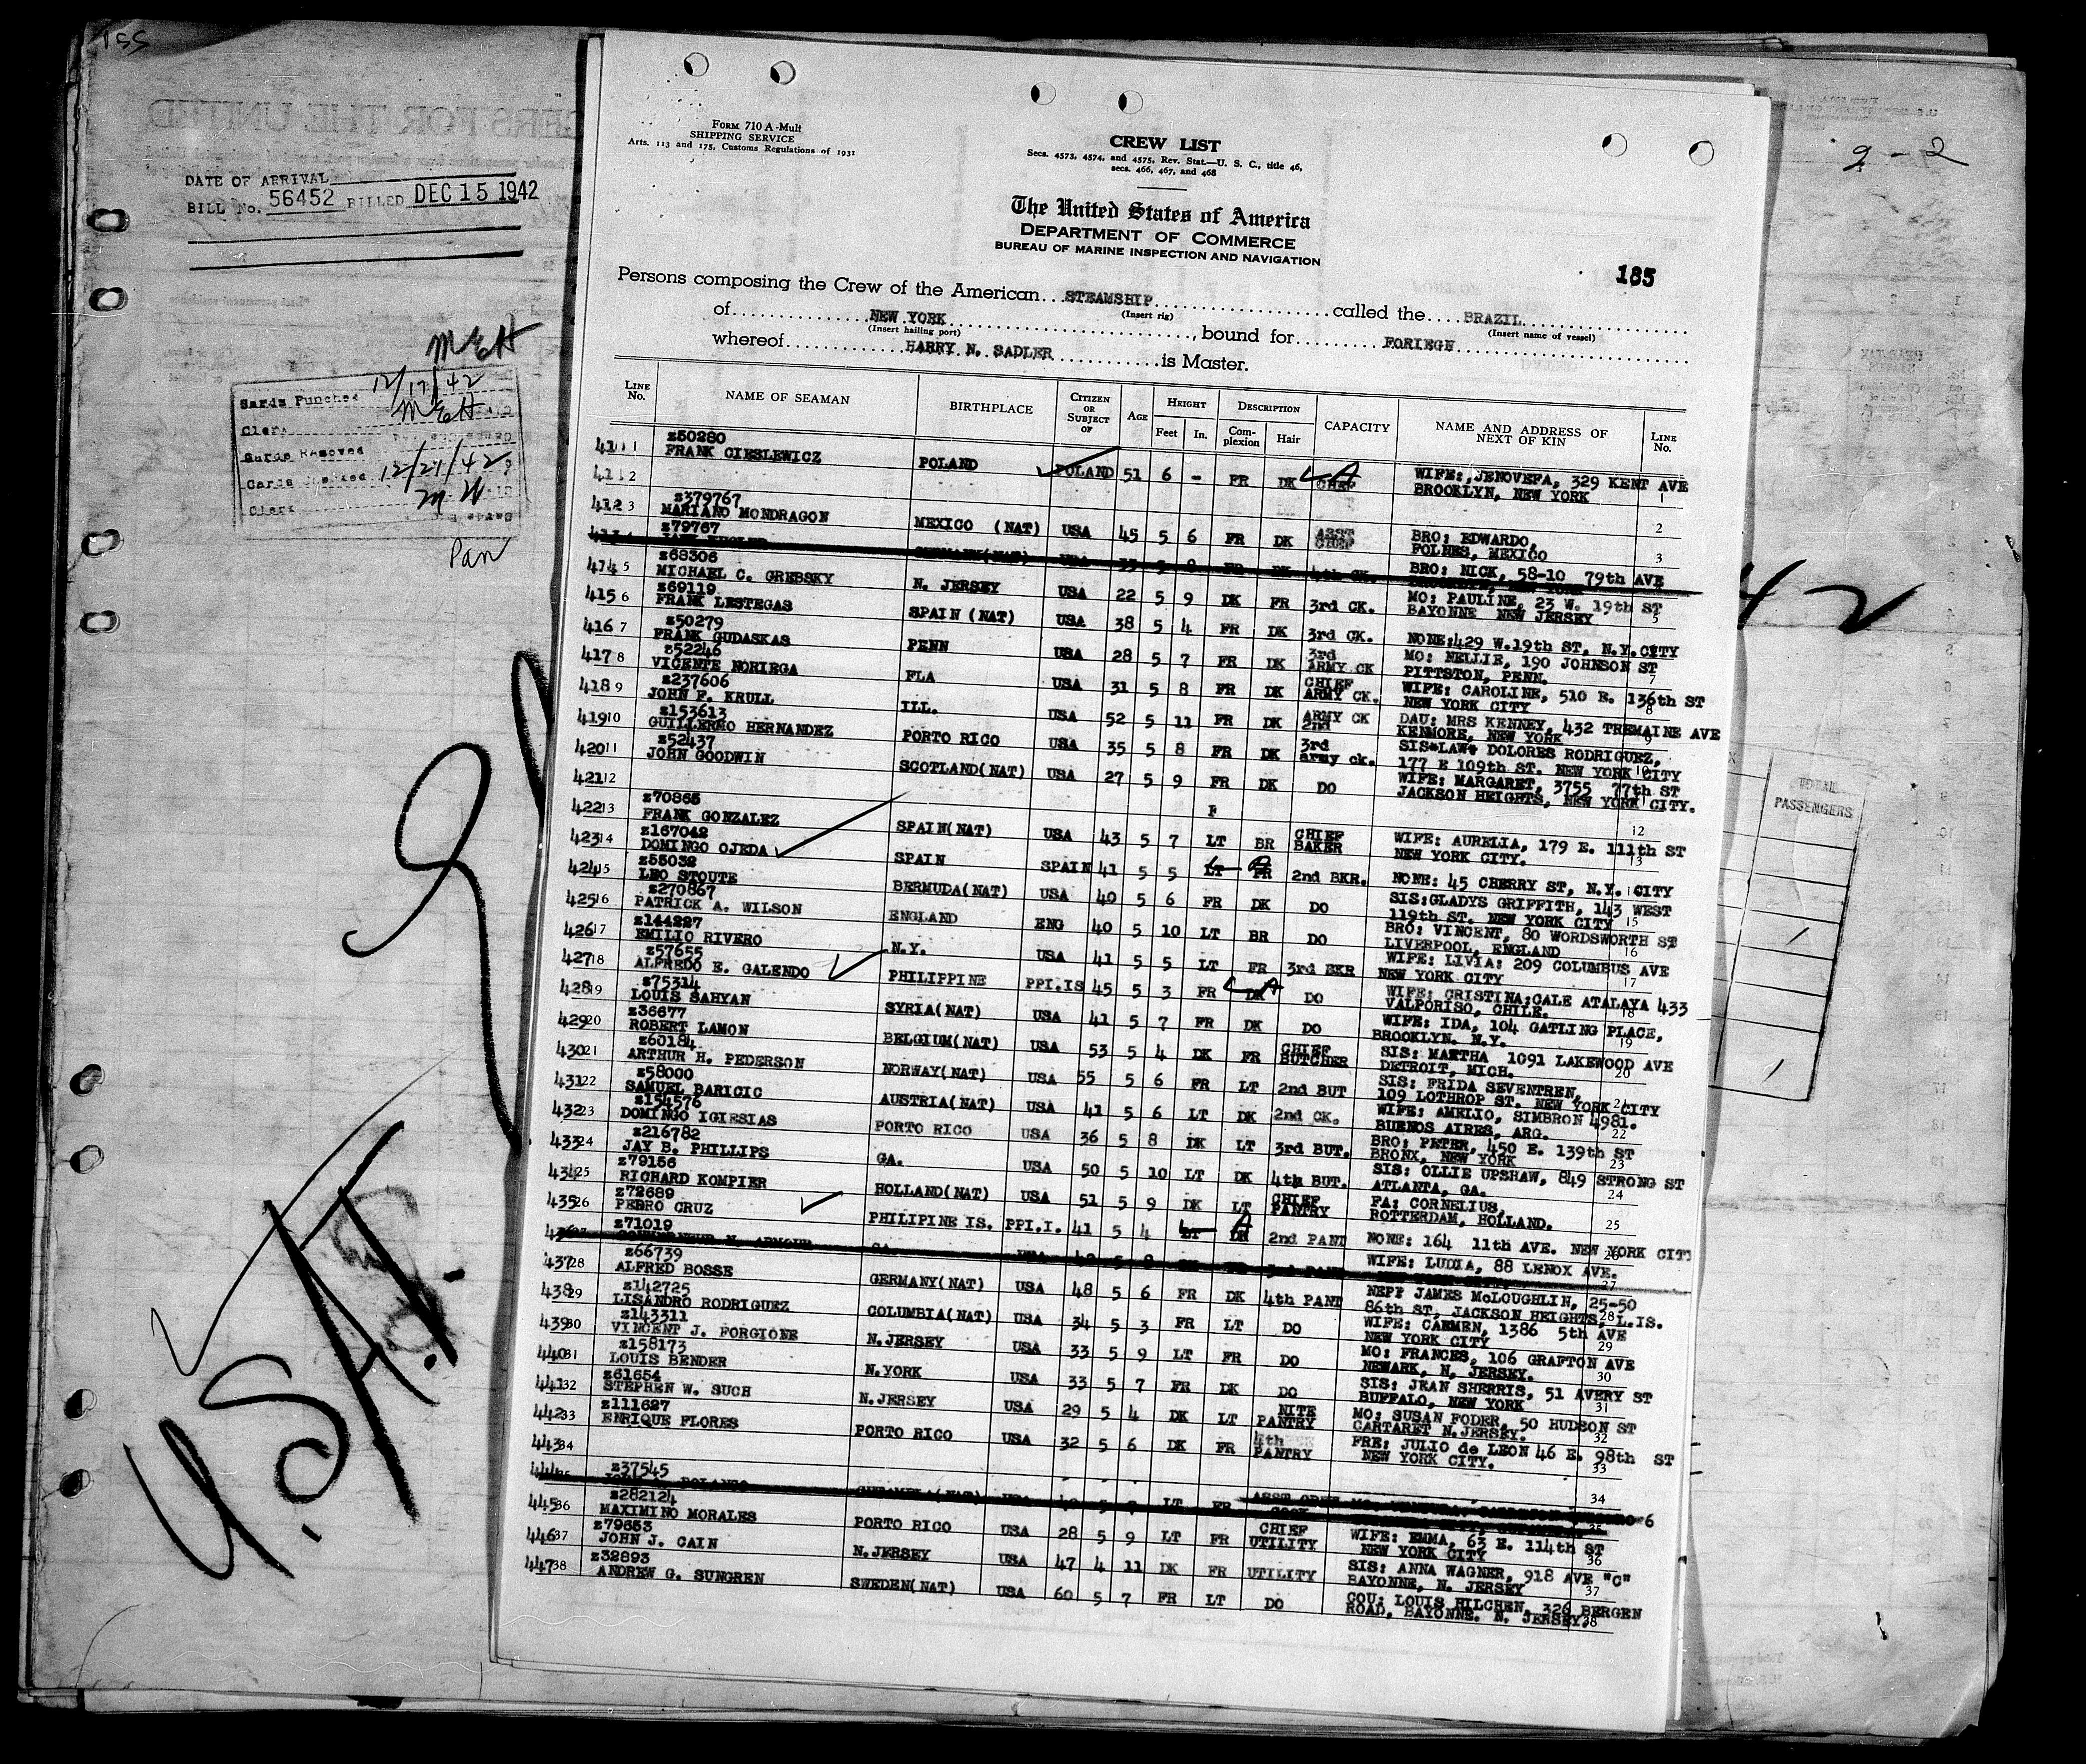 155
DATE OF ARRIVAL
BILL No. 56452 BILLED DEC 15 1942
MEH
Cards Punched 12/17/42
Clerk MEH
Cards Removed
Cards 12/21/42
Clerk M H
Pan
U.S.A.T.
2-2
42
PASSENGERS
FORM 710 A-Mult
SHIPPING SERVICE
Arts. 113 and 175, Customs Regulations of 1931
CREW LIST
Secs. 4573, 4574, and 4575, Rev. Stat.—U. S. C., title 46,
secs. 466, 467, and 468
The United States of America
DEPARTMENT OF COMMERCE
BUREAU OF MARINE INSPECTION AND NAVIGATION
185
Persons composing the Crew of the American STEAMSHIP called the BRAZIL
(Insert rig) (Insert name of vessel)
of NEW YORK, bound for FORIEGN
(Insert hailing port)
whereof HARRY N. SADLER is Master.
LINE No. NAME OF SEAMAN BIRTHPLACE CITIZEN OR SUBJECT OF AGE HEIGHT Feet In. DESCRIPTION Complexion Hair CAPACITY NAME AND ADDRESS OF NEXT OF KIN LINE No.
410 1 z50280
FRANK CIESLEWICZ POLAND POLAND 51 6 - FR DK CHEF WIFE: JENOVEFA, 329 KENT AVE
BROOKLYN, NEW YORK 1
411 2 2
412 3 z379767
MARIANO MONDRAGON MEXICO (NAT) USA 45 5 6 FR DK ASST CHEF BRO: EDWARDO,
FOLNES, MEXICO 3
z79767
GERMANY(NAT) USA 4th CK. BRO: NICK, 58-10 79th AVE
BROOKLYN, NEW YORK
414 5 z68306
MICHAEL C. GREBSKY N. JERSEY USA 22 5 9 DK FR 3rd CK. MO: PAULINE, 23 W. 19th ST
BAYONNE NEW JERSEY 5
415 6 z69119
FRANK LESTEGAS SPAIN (NAT) USA 38 5 4 FR DK 3rd CK. NONE:429 W.19th ST, N.Y.CITY
416 7 z50279
FRANK GUDASKAS PENN USA 28 5 7 FR DK 3rd ARMY CK MO: NELLIE, 190 JOHNSON ST
PITTSTON, PENN. 7
417 8 z52246
VICENTE NORIEGA FLA USA 31 5 8 FR DK CHIEF ARMY CK. WIFE: CAROLINE, 510 E. 136th ST
NEW YORK CITY 8
418 9 z237606
JOHN F. KRULL ILL. USA 52 5 11 FR DK ARMY CK 2nd DAU: MRS KENNEY, 432 TREMAINE AVE
KENMORE, NEW YORK 9
419 10 z153613
GUILLERMO HERNANDEZ PORTO RICO USA 35 5 8 FR DK 3rd army ck. SIS*LAW* DOLORES RODRIGUEZ,
177 E 109th ST. NEW YORK CITY 10
420 11 z52437
JOHN GOODWIN SCOTLAND(NAT) USA 27 5 9 FR DK DO WIFE: MARGARET, 3755 77th ST
JACKSON HEIGHTS, NEW YORK CITY.
421 12 12
422 13 z70865
FRANK GONZALEZ SPAIN(NAT) USA 43 5 7 LT BR CHIEF BAKER WIFE: AURELIA, 179 E. 111th ST
NEW YORK CITY. 13
423 14 z167042
DOMINGO OJEDA SPAIN SPAIN 41 5 5 LT FR 2nd BKR. NONE: 45 CHERRY ST, N.Y. CITY
424 15 z55032
LEO STOUTE BERMUDA(NAT) USA 40 5 6 FR DK DO SIS:GLADYS GRIFFITH, 143 WEST
119th ST. NEW YORK CITY 15
425 16 z270867
PATRICK A. WILSON ENGLAND ENG 40 5 10 LT BR DO BRO: VINCENT, 80 WORDSWORTH ST
LIVERPOOL, ENGLAND 16
426 17 z144227
EMILIO RIVERO N.Y. USA 41 5 5 LT FR 3rd BKR WIFE: LIVIA: 209 COLUMBUS AVE
NEW YORK CITY 17
427 18 z57655
ALFREDO E. GALENDO PHILIPPINE PPI.IS 45 5 3 FR DK DO WIFE: CRISTINA:CALE ATALAYA 433
VALPORISO, CHILE. 18
428 19 z75314
LOUIS SAHYAN SYRIA(NAT) USA 41 5 7 FR DK DO WIFE: IDA, 104 GATLING PLACE,
BROOKLYN. N.Y. 19
429 20 z36677
ROBERT LAMON BELGIUM(NAT) USA 53 5 4 DK FR CHIEF BUTCHER SIS: MARTHA 1091 LAKEWOOD AVE
DETROIT, MICH. 20
430 21 z60184
ARTHUR H. PEDERSON NORWAY(NAT) USA 55 5 6 FR LT 2nd BUT SIS: FRIDA SEVENTREN,
109 LOTHROP ST. NEW YORK CITY 21
431 22 z58000
SAMUEL BARICIC AUSTRIA(NAT) USA 41 5 6 LT DK 2nd CK. WIFE: AMELIO, SIMBRON 4981.
BUENOS AIRES, ARG. 22
432 23 z154576
DOMINGO IGIESIAS PORTO RICO USA 36 5 8 DK LT 3rd BUT. BRO: PETER, 450 E. 139th ST
BRONX, NEW YORK 23
433 24 z216782
JAY B. PHILLIPS GA. USA 50 5 10 LT DK 4th BUT. SIS: OLLIE UPSHAW, 849 STRONG ST
ATLANTA, GA. 24
434 25 z79156
RICHARD KOMPIER HOLLAND(NAT) USA 51 5 9 DK LT CHIEF PANTRY FA: CORNELIUS,
ROTTERDAM, HOLLAND. 25
435 26 z72689
PEDRO CRUZ PHILIPINE IS. PPI.I. 41 5 4 LT DK 2nd PANT NONE: 164 11th AVE. NEW YORK CITY
26
z71019
GA. USA WIFE: LUDIA, 88 LENOX AVE.
27
437 28 z66739
ALFRED BOSSE GERMANY(NAT) USA 48 5 6 FR DK 4th PANT NEP? JAMES McLOUGHLIN, 25-50
86th ST, JACKSON HEIGHTS, L.IS. 28
438 29 z142725
LISANDRO RODRIGUEZ COLUMBIA(NAT) USA 34 5 3 FR LT DO WIFE: CARMEN, 1386 5th AVE
NEW YORK CITY 29
439 30 z143311
VINCENT J. FORGIONE N.JERSEY USA 33 5 9 LT FR DO MO: FRANCES, 106 GRAFTON AVE
NEWARK, N. JERSEY. 30
440 31 z158173
LOUIS BENDER N.YORK USA 33 5 7 FR DK DO SIS: JEAN SHERRIS, 51 AVERY ST
BUFFALO, NEW YORK 31
441 32 z61654
STEPHEN W. SUCH N.JERSEY USA 29 5 4 DK LT NITE PANTRY MO: SUSAN FODER, 50 HUDSON ST
CARTARET N.JERSEY. 32
442 33 z111627
ENRIQUE FLORES PORTO RICO USA 32 5 6 DK FR 4th PANTRY FRE: JULIO de LEON 46 E. 98th ST
NEW YORK CITY. 33
443 34 34
z37545
LT FR
445 36 z282124
MAXIMINO MORALES PORTO RICO USA 28 5 9 LT FR CHIEF UTILITY WIFE: EMMA, 63 E. 114th ST
NEW YORK CITY 36
446 37 z79653
JOHN J. CAIN N.JERSEY USA 47 4 11 DK FR UTILITY SIS: ANNA WAGNER, 918 AVE "C"
BAYONNE, N. JERSEY 37
447 38 z32893
ANDREW G. SUNGREN SWEDEN(NAT) USA 60 5 7 FR LT DO COU: LOUIS HILCHEN, 326 BERGEN
ROAD, BAYONNE. N. JERSEY. 38